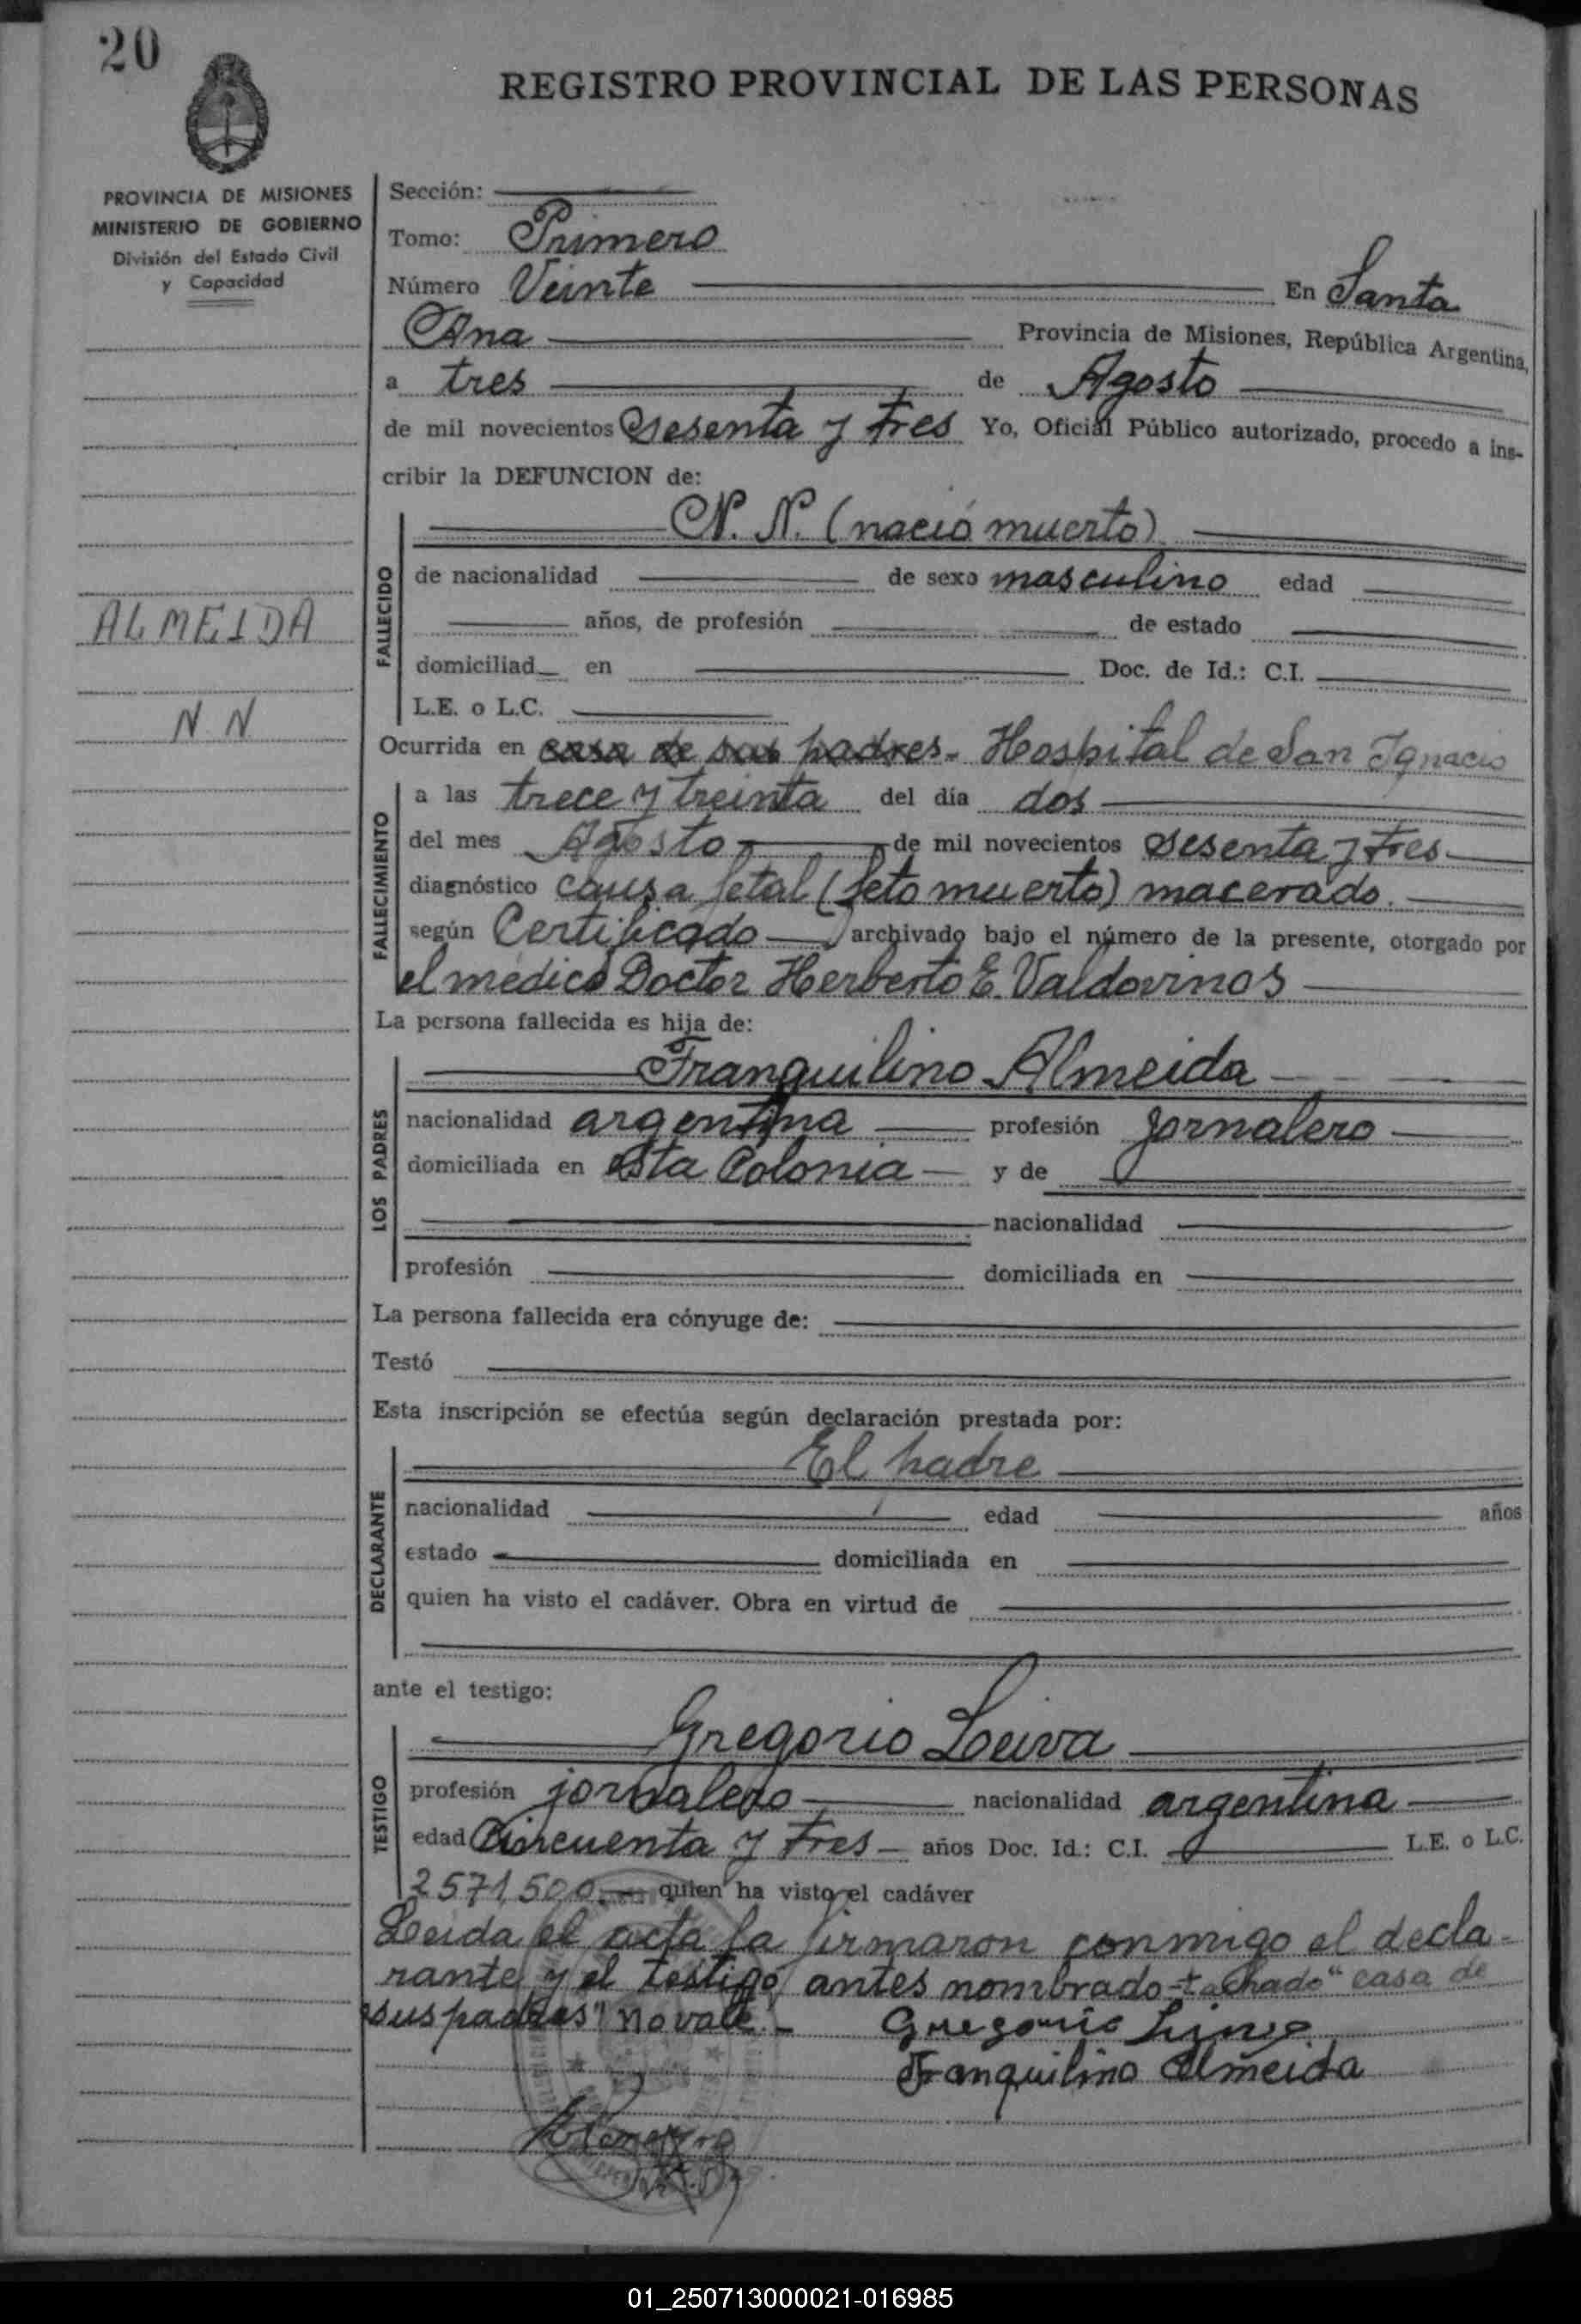 20
REGISTRO PROVINCIAL DE LAS PERSONAS
PROVINCIA DE MISIONES
MINISTERIO DE GOBIERNO
División del Estado Civil
y Capacidad
ALMEIDA
N N
Sección:
Tomo: Primero
Número Veinte En Santa
Ana Provincia de Misiones, República Argentina,
a tres de Agosto
de mil novecientos sesenta y tres Yo, Oficial Público autorizado, procedo a ins-
cribir la DEFUNCION de:
FALLECIDO
N. N. (nació muerto)
de nacionalidad de sexo masculino edad
años, de profesión de estado
domiciliad en Doc. de Id.: C.I.
L.E. o L.C.
Ocurrida en casa de sus padres. Hospital de San Ignacio
FALLECIMIENTO
a las trece y treinta del día dos
del mes Agosto de mil novecientos sesenta y tres
diagnóstico causa fetal (feto muerto) macerado.
según Certificado archivado bajo el número de la presente, otorgado por
el médico Doctor Herberto E. Valdovinos
La persona fallecida es hija de:
LOS PADRES
Tranquilino Almeida
nacionalidad argentina profesión jornalero
domiciliada en esta Colonia y de
nacionalidad
profesión domiciliada en
La persona fallecida era cónyuge de:
Testó
Esta inscripción se efectúa según declaración prestada por:
DECLARANTE
El padre
nacionalidad edad años
estado domiciliada en
quien ha visto el cadáver. Obra en virtud de
ante el testigo:
TESTIGO
Gregorio Leiva
profesión jornalero nacionalidad argentina
edad Cincuenta y tres años Doc. Id.: C.I. L.E. o L.C.
2571,500.- quien ha visto el cadáver
Leida el acta la firmaron conmigo el decla-
rante y el testigo antes nombrado - tachado "casa de
sus padres" no vale.-
Gregorio
Tranquilino Almeida
01_250713000021-016985